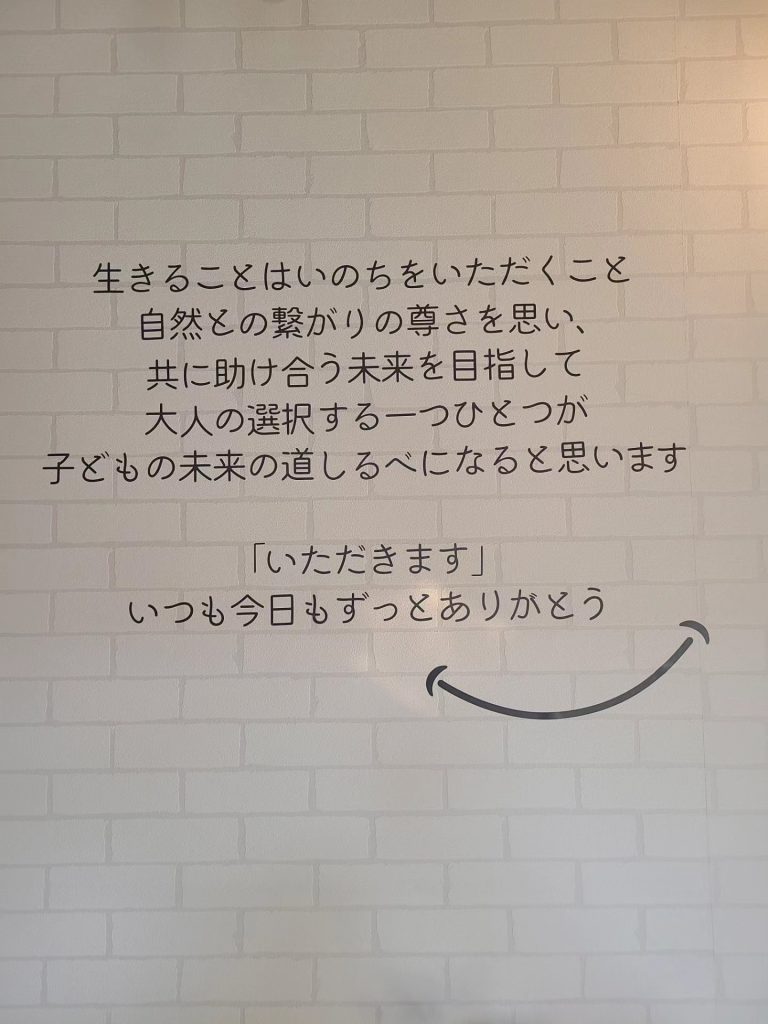 生きることはいのちをいただくこと
自然との繋がりの尊さを思い、
共に助け合う未来を目指して
大人の選択する一つひとつが
子どもの未来の道しるべになると思います
「いただきます」
いつも今日もずっとありがとう